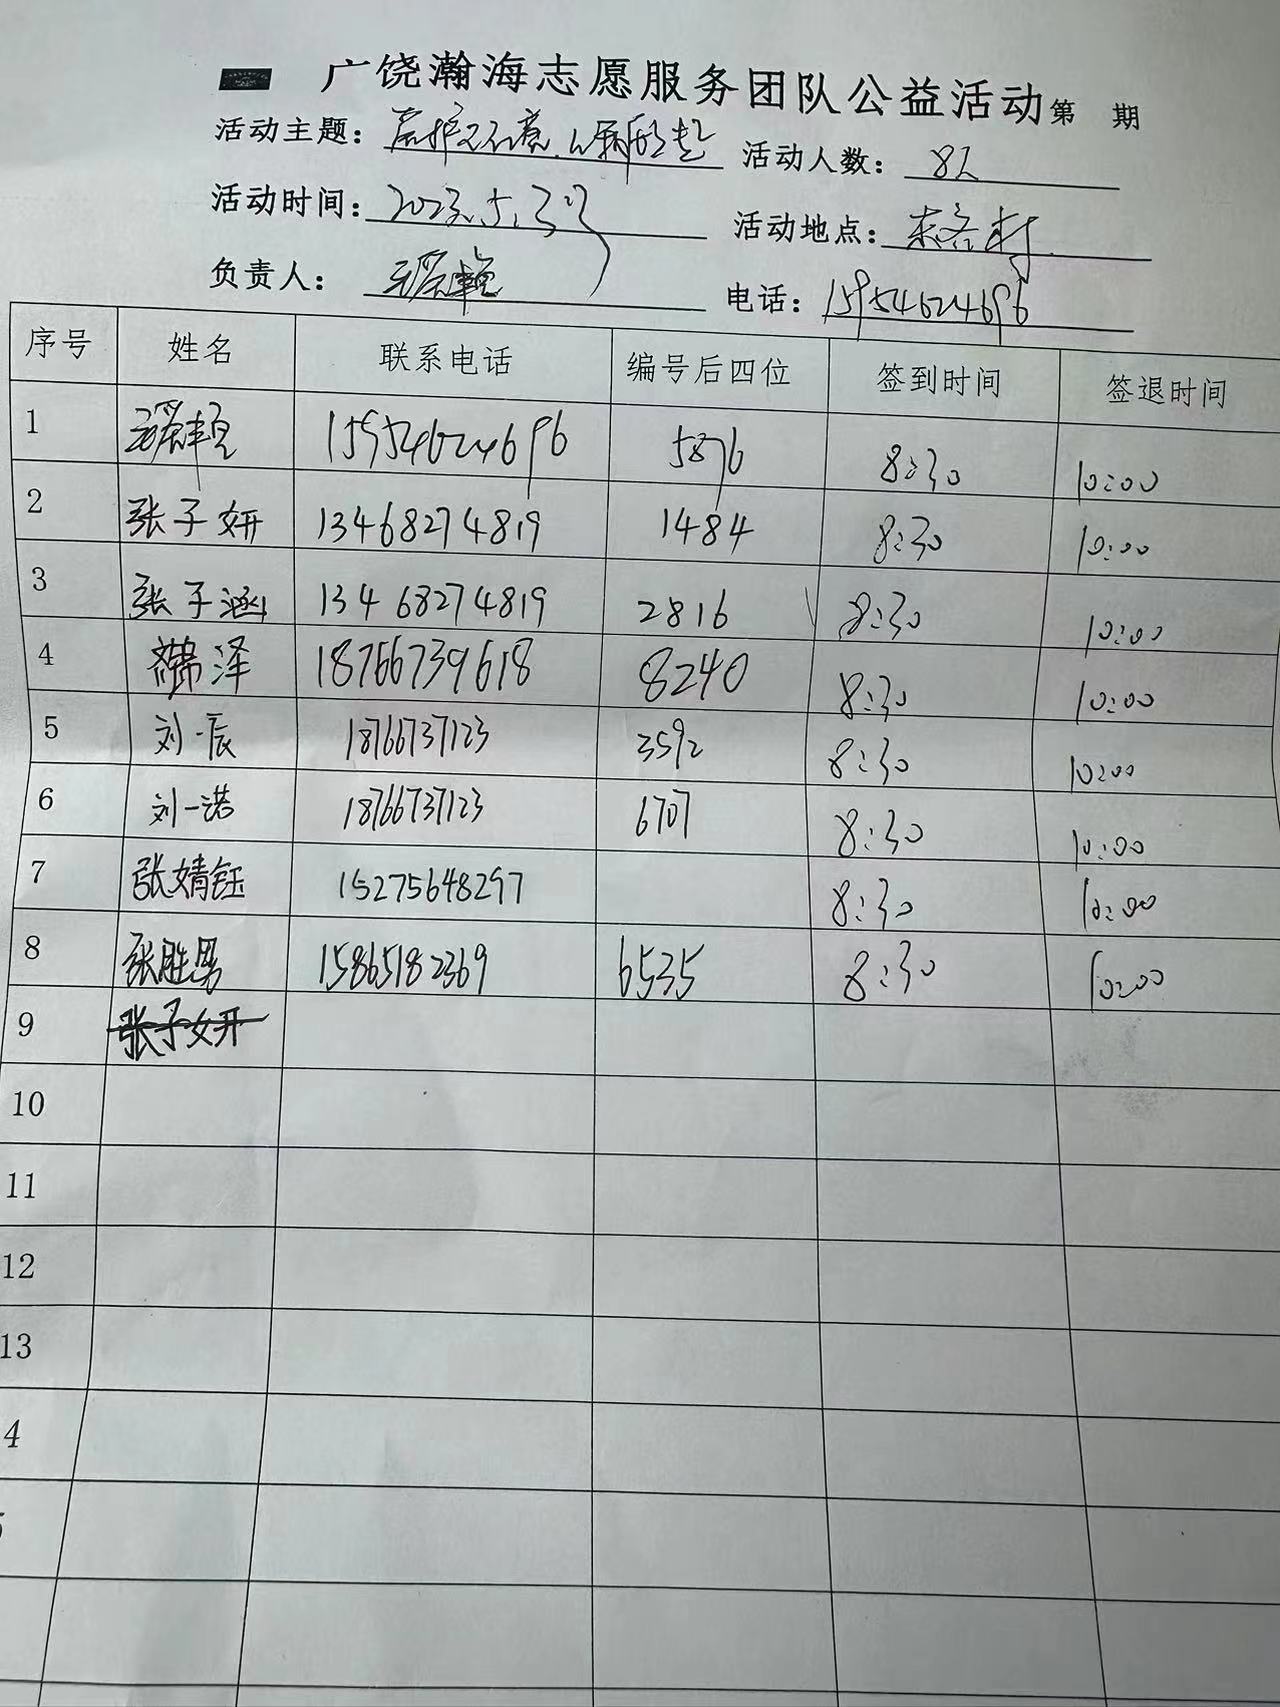 广饶瀚海志愿服务团队公益活动第 期
活动主题： 活动人数：8人
活动时间：2023.5.3号 活动地点：村
负责人： 电话：15954624696
序号 姓名 联系电话 编号后四位 签到时间 签退时间
1 15954624696 5876 8:30 10:00
2 张子妍 13468274819 1484 8:30 10:00
3 张子涵 13468274819 2816 8:30 10:00
4 泽 18766739618 8240 8:30 10:00
5 刘一辰 18766737123 3592 8:30 10:00
6 刘一诺 18766737123 6707 8:30 10:00
7 张婧钰 15275648297 8:30 10:00
8 张胜男 15865182369 6535 8:30 10:00
9 张子妍
10
11
12
13
4
5